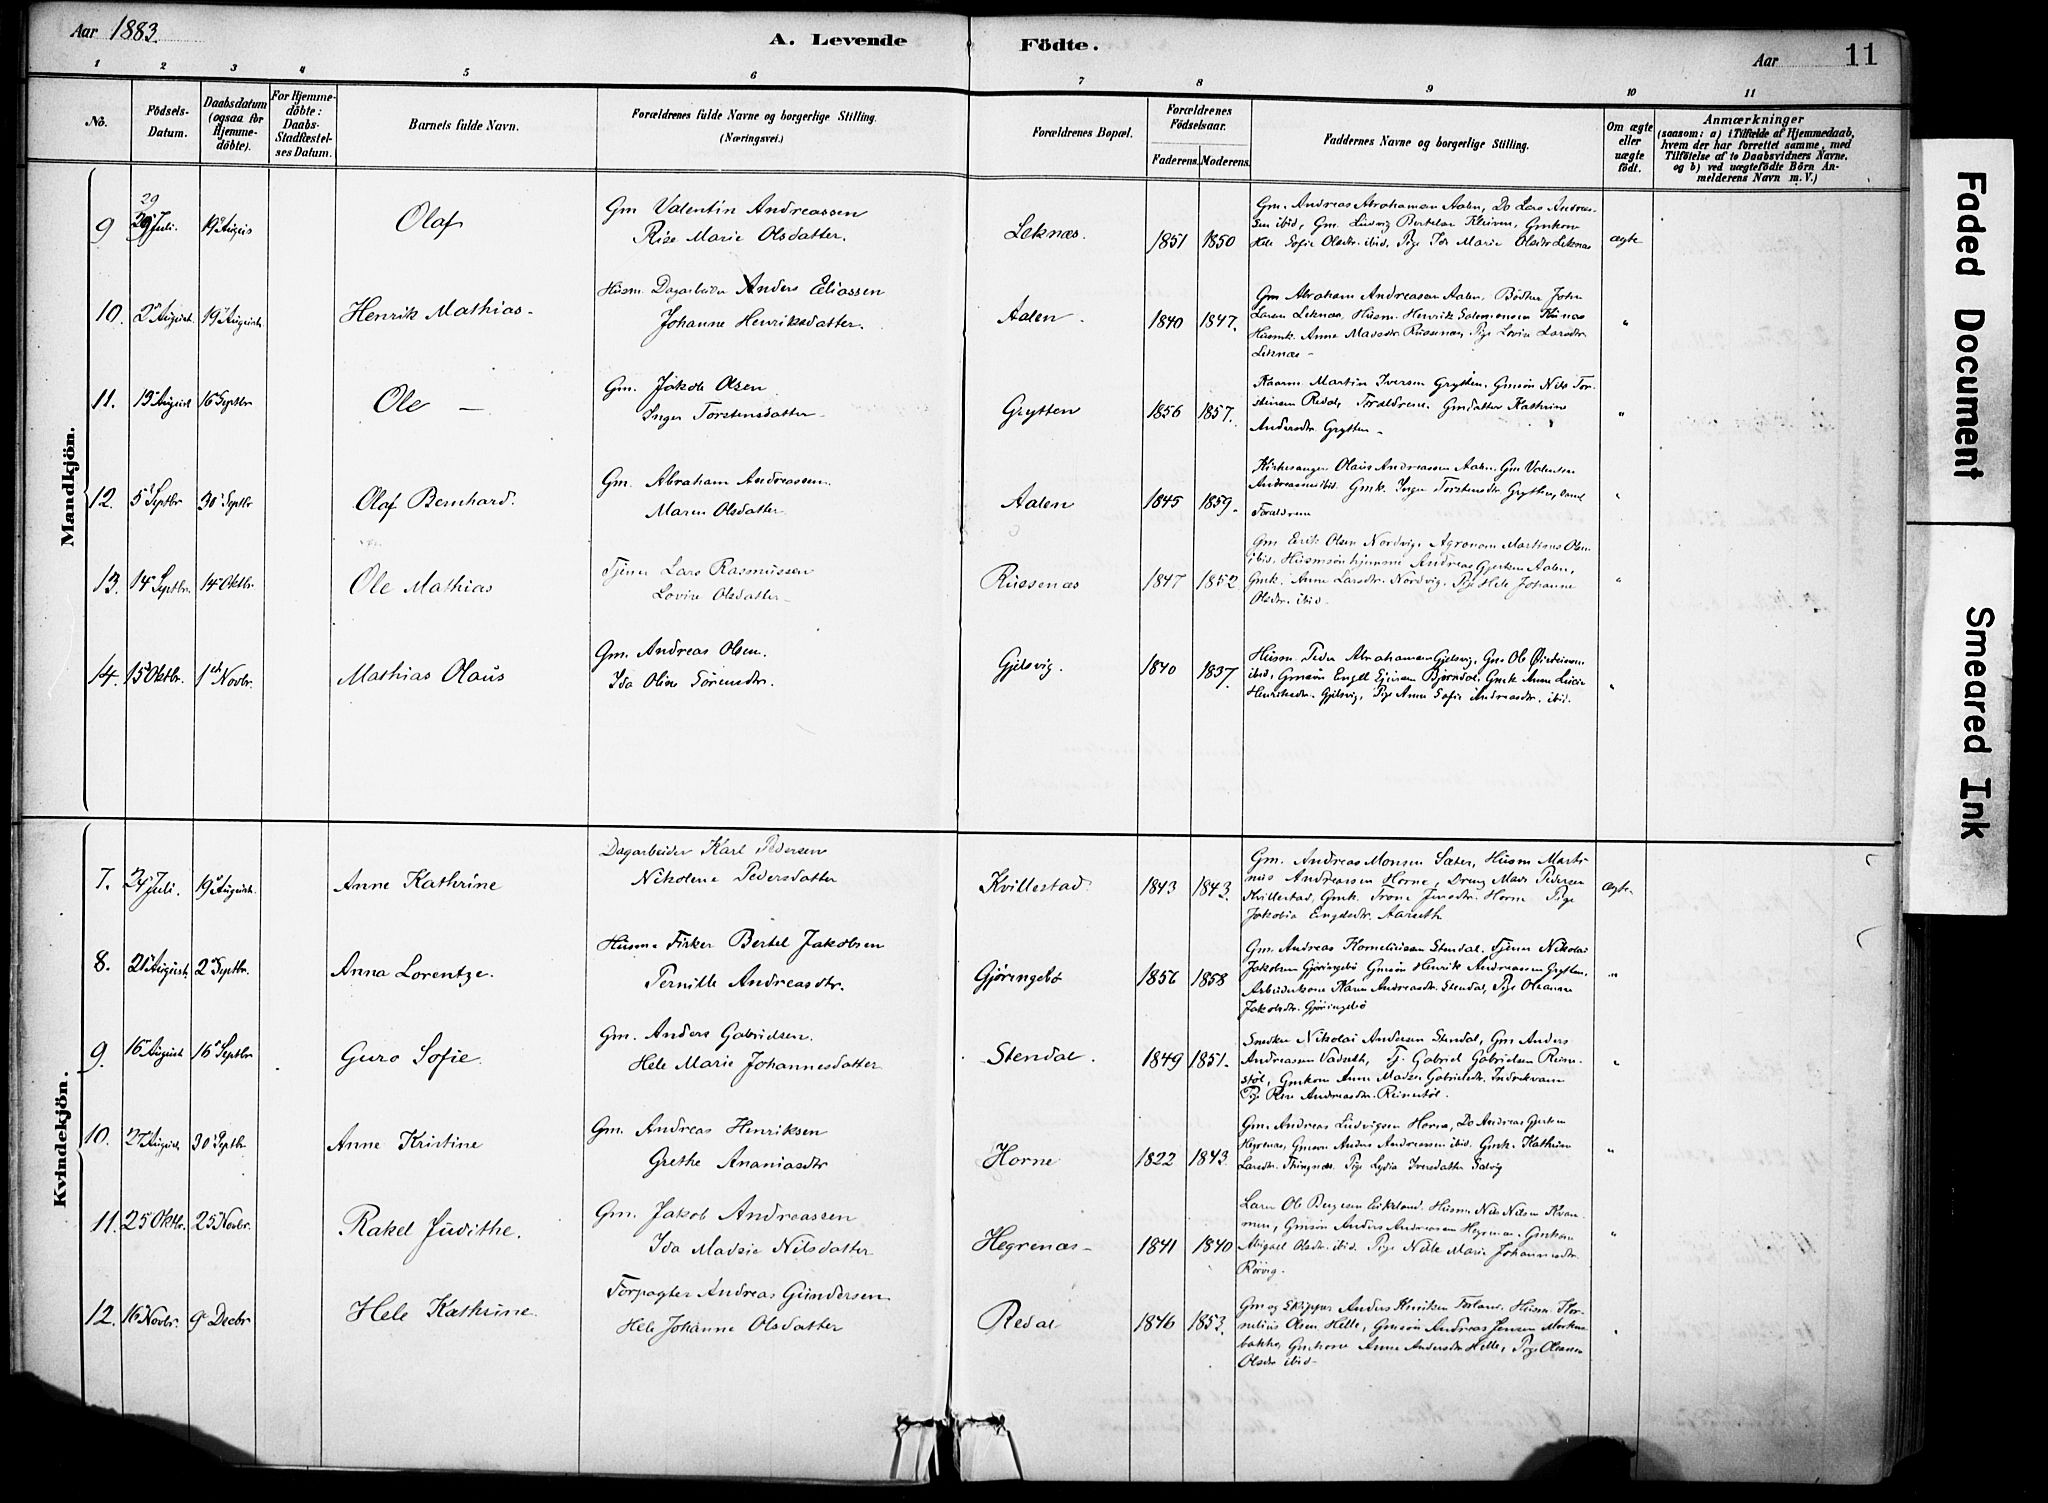 Aar 1883.
A. Levende Födte.
Aar
11
1 2 3 4 5 6 7 8 9 10 11
No.
Födsels-Datum.
Daabsdatum (ogsaa for Hjemme-döbte).
For Hjemme-döbte: Daabs-Stadfæstel-ses Datum.
Barnets fulde Navn.
Forældrenes fulde Navne og borgerlige Stilling. (Næringsvei.)
Forældrenes Bopæl.
Forældrenes Födselsaar.
Faderens. Moderens.
Faddernes Navne og borgerlige Stilling.
Om ægte eller uægte födt.
Anmærkninger (saasom: a) i Tilfælde af Hjemmedaab, hvem der har forrettet samme, med Tilföielse af to Daabsvidners Navne, og b) ved uægtefödte Börn An-melderens Navn m. V.)
Mandkjön.
29
9 Juli. 19 August Olaf
Gm Valentin Andreassen
Marie Olsdatter.
Leknæs. 1851 1850
Gm. Andreas Abrahamsen Aalen, Do Lars Andreas-
sen ibid, Gm. Ludvig Bertelsen Kleiven, Gmkon
Hele Sofie Olsdtr. ibid, Pige Ida Marie Olsdtr Leknæs
ægte
10. 2 August. 19 August. Henrik Mathias -
Husm. Dagarbeider Anders Eliassen
Johanne Henriksdatter.
Aalen. 1840 1847.
Gm Abraham Andreassen Aalen, John
Larsen Leknæs, Husm. Henrik Salomonsen
Husmk. Anne Madsdtr Russenæs, Pige Lovise Larsdtr
Leknæs -
"
11. 13 August 16 Septbr Ole -
Gm. Jakob Olsen
Inger Torstensdatter -
Grytten 1856 1857.
Martin Iversen Grytten, Gmsön Nils Tor-
stensen Redal, Forældrene, Gmdatter Kathrine
Andersdtr Grytten -
"
12. 5 Septbr 30 Septbr Olaf Bernhard.
Gm. Abraham Andreassen.
Maren Olsdatter
Aalen 1845 1859.
Kirkesanger Olaus Andreassen Aalen, Gm Valentin
Andreassen ibid. Gmk. Inger Torstensdtr Grytten, samt
Forældrene
"
13. 14 Septbr. 14 Oktbr. Ole Mathias
Tjener Lars Rasmussen
Lovise Olsdatter -
Russenæs 1847 1852
Gm Eerik Olsen Nordvig, Agronom Martinus Olsen
ibid, Husmsön hjemme Andreas Gjertsen Aalen,
Gmk. Anne Larsdtr. Nordvig, Pige Hele Johanne
Olsdtr. ibid.
"
14. 15 Oktbr. 1 Novbr. Mathias Olaus
Gm. Andreas Olsen.
Ida Oline Sörensdtr.
Gjelsvig. 1840 1837.
Husm Peder Abrahamsen Gjelsvig, Gm Ole
ibid, Gmsön Engel Bjørndal, Gmk Anne Lucie
Henriksdtr. Gjelsvig, Pige Anne Sofie Andreasdtr. ibid.
"
Kvindekjön.
7. 24 Juli. 19 August. Anne Kathrine
Dagarbeider Karl Pedersen
Nikoline Pedersdatter
Kvillestad. 1843 1843.
Gm. Andreas Monsen Sæter, Husm Marti-
nus Andreassen Horne, Dreng Mads Pedersen
Kvillestad, Gmk. Trone Jensdtr. Horne Pige
Jakobia Engelsdtr. Aarseth
ægte
8. 21 August. 2 Septbr. Anna Lorentze.
Husm. Fisker Bertel Jakobsen
Pernille Andreasdtr.
Gjöringebö 1856 1858
Gm. Andreas Korneliussen Stendal, Tjener Nikolai
Jakobsen Gjöringebö Gmsön Henrik Andreassen Grytten,
Arbeiderkone Karen Andreasdtr. Stendal, Pige Oleanna
Jakobsdtr. Gjöringebö
"
9. 16 August 16 Septbr Guro Sofie.
Gm. Anders Gabrielsen.
Hele Marie Johannesdatter
Stendal. 1849 1851.
Nikolai Andersen Stendal, Gm Anders
Andreassen Vadseth, Tj. Gabriel Gabrielsen
Gmkon Anne Gabrielsdtr. Indrekvam
Pige Andreasdtr.
"
10. 27 August 30 Septbr. Anne Kristine
Gm. Andreas Henriksen
Grethe Ananiasdtr
Horne 1822 1843.
Gm. Andreas Ludvigsen Horne, Do Andreas Gjertsen
Hegrenæs, Gmsön Anders Andreassen ibid. Gmk. Kathrine
Larsdtr. Thingnæs, Pige Lydia Iversdatter
"
11. 25 Oktbr. 25 Novbr. Rakel Judithe.
Gm. Jakob Andreassen
Ida Madsie Nilsdatter
Hegrenæs - 1841 1840
Ole Bergesen Husm. Nils Nilsen Kvam-
men, Gmsön Anders Andreassen Hegrenæs, Gmkone
Abigael Olsdtr. ibid. Pige Nille Marie Johannesdtr.
Rörvig.
"
12. 16 Novbr. 9 Decbr Hele Kathrine
Forpagter Andreas Gundersen
Hele Johanne Olsdatter
Redal 1846 1853.
Gm og Skipper Anders Knutsen Husm. Kor-
nelius Olsen Helle, Gmsön Andreas Jensen Morken-
bakke, Gmkone Anne Andersdtr Helle, Pige Oleanna
Olsdtr ibid -
Faded Document
Smeared Ink